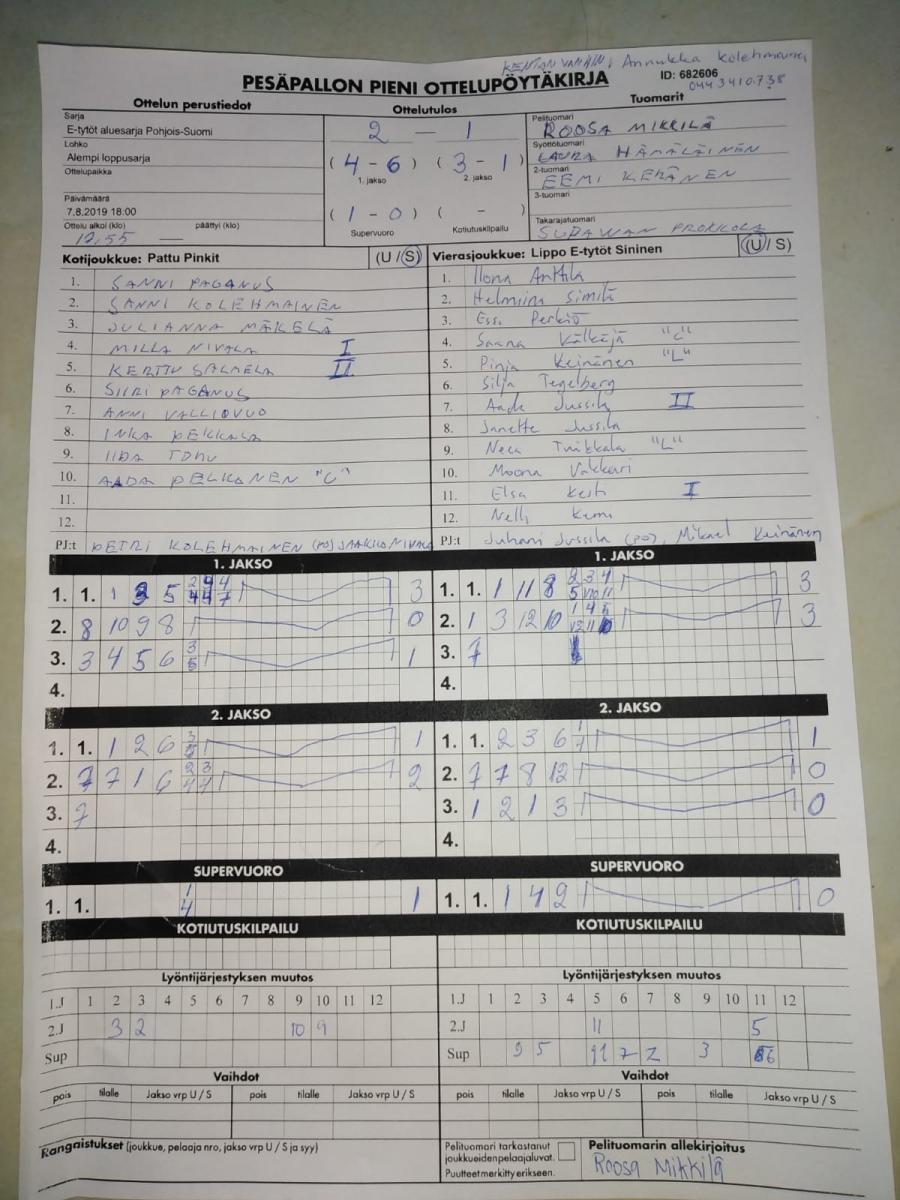 KENTÄN VANHIN: Annukka Kolehmainen
0443410738
PESÄPALLON PIENI OTTELUPÖYTÄKIRJA
ID: 682606
Ottelun perustiedot
Ottelutulos
Tuomarit
Sarja
E-tytöt aluesarja Pohjois-Suomi
Lohko
Alempi loppusarja
Ottelupaikka
Päivämäärä
7.8.2019 18:00
Ottelu alkoi (klo) päättyi (klo)
—
2 — 1
( 4 - 6 ) ( 3 - 1 )
1. jakso 2. jakso
( 1 - 0 ) ( - )
Supervuoro Kotiutuskilpailu
Pelituomari
ROOSA MIKKILÄ
Syöttötuomari
LAURA HÄMÄLÄINEN
2-tuomari
EEMI KERÄNEN
3-tuomari
Takarajatuomari
Kotijoukkue: Pattu Pinkit (U / S)
1. SANNI PAGANUS
2. SANNI KOLEHMAINEN
3. JULIANNA MÄKELÄ
4. MILLA NIVALA I
5. KERTTU SALMELA II
6. SIIRI PAGANUS
7. ANNI VALLIOVUO
8. INKA PEKKALA
9. IIDA
10. AADA PELKONEN "C"
11.
12.
PJ:t PETRI KOLEHMAINEN (PJ) JAAKKO NIVALA
Vierasjoukkue: Lippo E-tytöt Sininen (U / S)
1. Ilona Anttila
2. Helmiina Similä
3. Essi Perkiö
4. Saana Välkkjä "C"
5. Pinja Keinänen "L"
6. Silja Tegelberg
7. Aada Jussila II
8. Janette Jussila
9. Neea "L"
10. Moona Vakkuri
11. Elsa I
12. Nelli Kemi
PJ:t Juhani Jussila (PJ), Mikael Keinänen
1. JAKSO
1. 1. 1 3 5 3
2. 8 10 9 8 0
3. 3 4 5 6 3 5 1
4.
1. JAKSO
1. 1. 1 11 8 2 3 4 5 10 11 3
2. 1 3 12 10 3
3. 7
4.
2. JAKSO
1. 1. 1 2 6 3 5 1
2. 7 7 1 6 2 3 4 4 2
3. 7
4.
2. JAKSO
1. 1. 2 3 6 1 7 1
2. 7 7 8 12 0
3. 1 2 1 3 0
4.
SUPERVUORO
1. 1. 1 4 1
SUPERVUORO
1. 1. 1 4 2 0
KOTIUTUSKILPAILU
KOTIUTUSKILPAILU
Lyöntijärjestyksen muutos
1.J 1 2 3 4 5 6 7 8 9 10 11 12
2.J 3 2 10 9
Sup
Lyöntijärjestyksen muutos
1.J 1 2 3 4 5 6 7 8 9 10 11 12
2.J 11 5
Sup 9 5 7 2 3 6
Vaihdot
pois tilalle Jakso vrp U / S pois tilalle Jakso vrp U / S
Vaihdot
pois tilalle Jakso vrp U / S pois tilalle Jakso vrp U / S
Rangaistukset (joukkue, pelaaja nro, jakso vrp U / S ja syy)
Pelituomari tarkastanut
joukkueiden pelaajaluvat.
Puutteet merkitty erikseen.
Pelituomarin allekirjoitus
Roosa Mikkilä